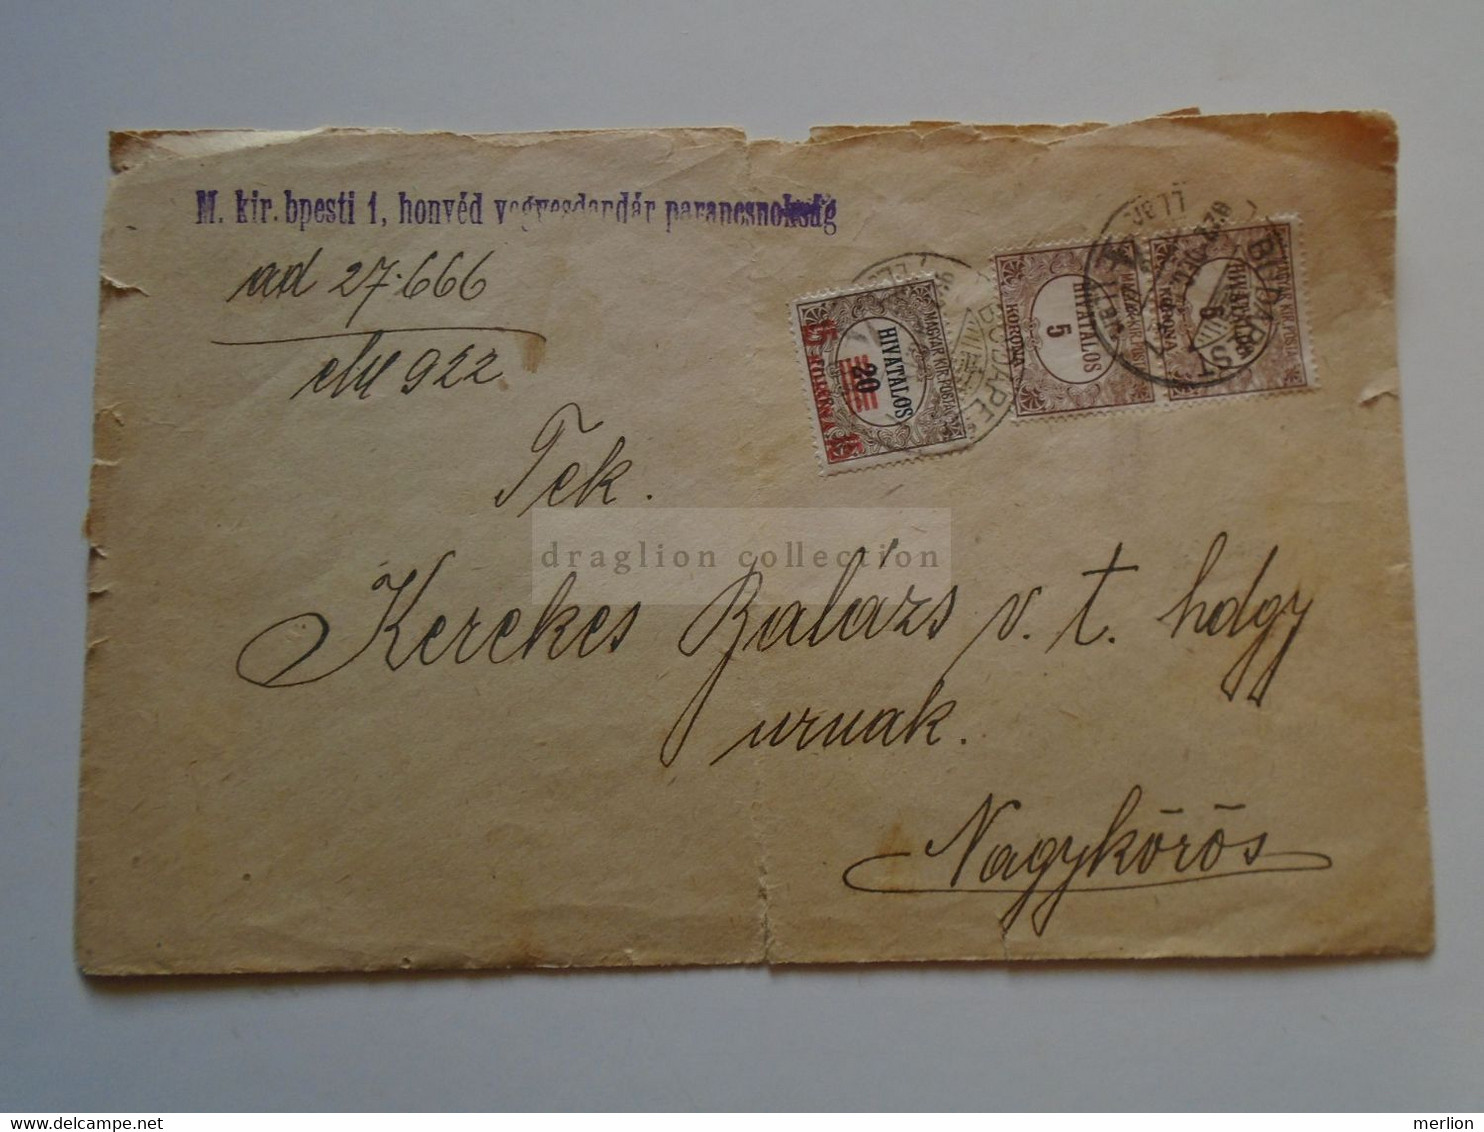 M. kir. bpesti 1, honvéd vegyesdandár parancsnokság
ad 27.666
eln 922
Tek.
Kerekes Balázs v. t. hdgy
urnak.
Nagykőrös
MAGYAR KIR. POSTA
HIVATALOS
20
15 KORONA 15
MAGYAR KIR. POSTA
HIVATALOS
5
KORONA
MAGYAR KIR. POSTA
HIVATALOS
5
KORONA
BUDAPEST
BUDAPEST
draglion collection
merlion